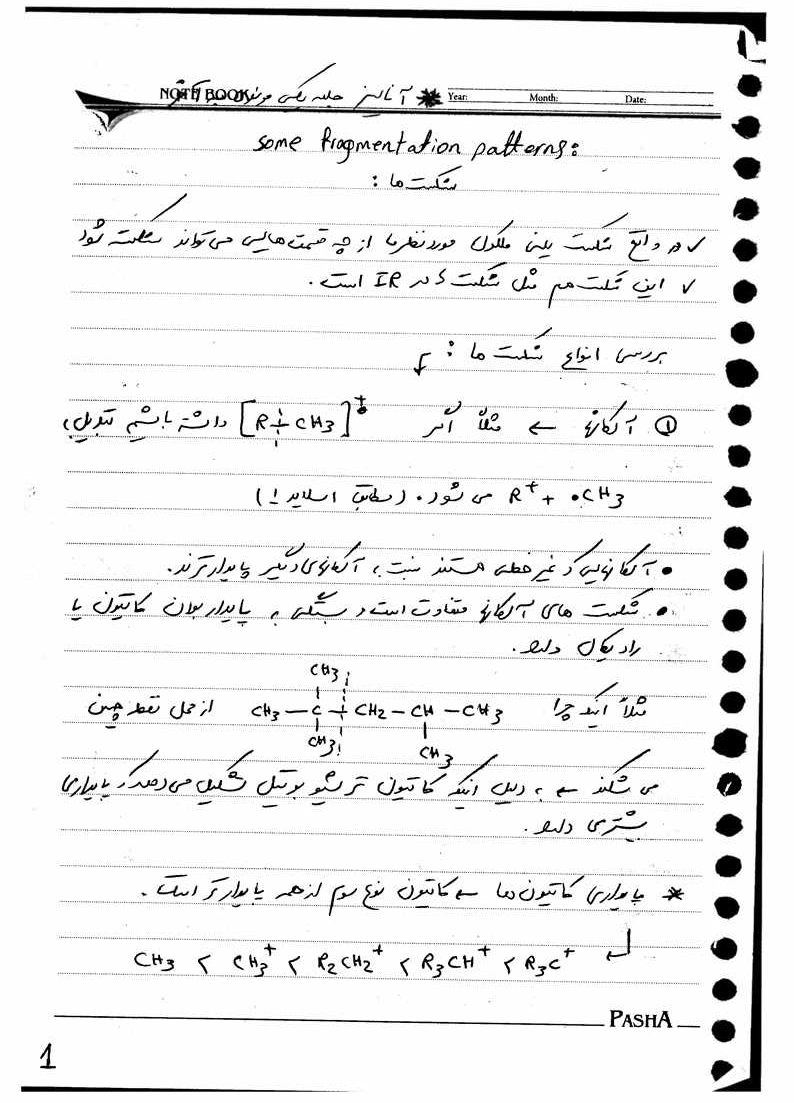 NOTE BOOK آنالیز جلسه یکی Year: Month: Date:
some fragmentation patterns:
شکست ها:
✓ در واقع شکست یعنی ملکول موردنظر ما از چه قسمت هایی می تواند شکسته شود
✓ این شکست هم مثل شکست در IR است.
بررسی انواع شکست ها:
① آلکانها ← مثلاً اگر [R-CH3]+• داشته باشیم تبدیل به
R+ + •CH3 می شود. (مطابق اسلاید 1)
• آلکانهایی که غیر خطی هستند نسبت به آلکانهای دیگر پایدارترند.
• شکست های آلکانها متفاوت است و بستگی به پایدار بودن کاتیون یا
رادیکال دارد.
CH3
مثلاً اینکه چرا CH3-C-CH2-CH-CH3 از محل نقطه چین
CH3 CH3
می شکند ← به دلیل اینکه کاتیون ترشیو بوتیل تشکیل می دهد که پایداری
بیشتری دارد.
* پایداری کاتیون ها ← کاتیون نوع سوم از همه پایدارتر است.
CH3 < CH3+ < R2CH2+ < R3CH+ < R3C+
PASHA
1